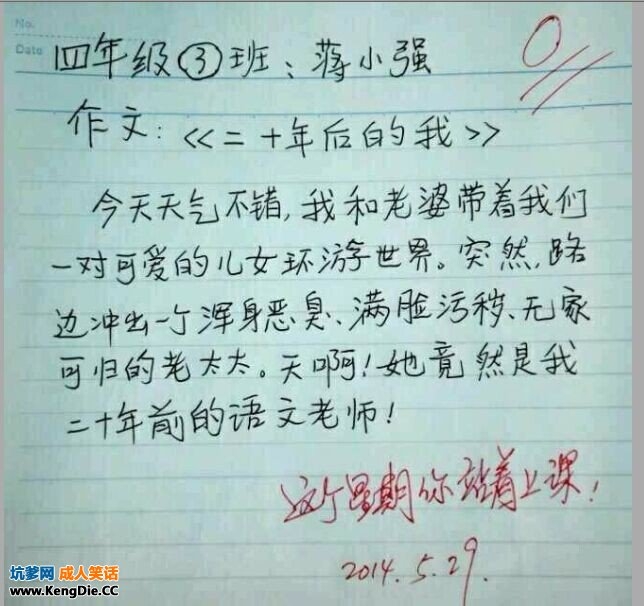 No.
Date
四年级③班：蒋小强
0
作文：<<二十年后的我>>
今天天气不错,我和老婆带着我们
一对可爱的儿女环游世界。突然,路
边冲出一个浑身恶臭、满脸污秽、无家
可归的老太太。天啊!她竟然是我
二十年前的语文老师!
这个星期你站着上课!
2014.5.29.
坑爹网 成人笑话
www.KengDie.CC